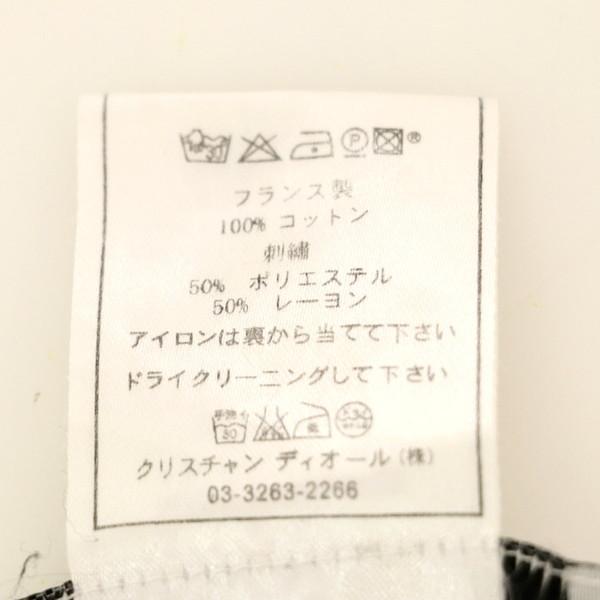 P ®
フランス製
100% コットン
刺繍
50% ポリエステル
50% レーヨン
アイロンは裏から当てて下さい
ドライクリーニングして下さい
クリスチャン ディオール(株)
03-3263-2266